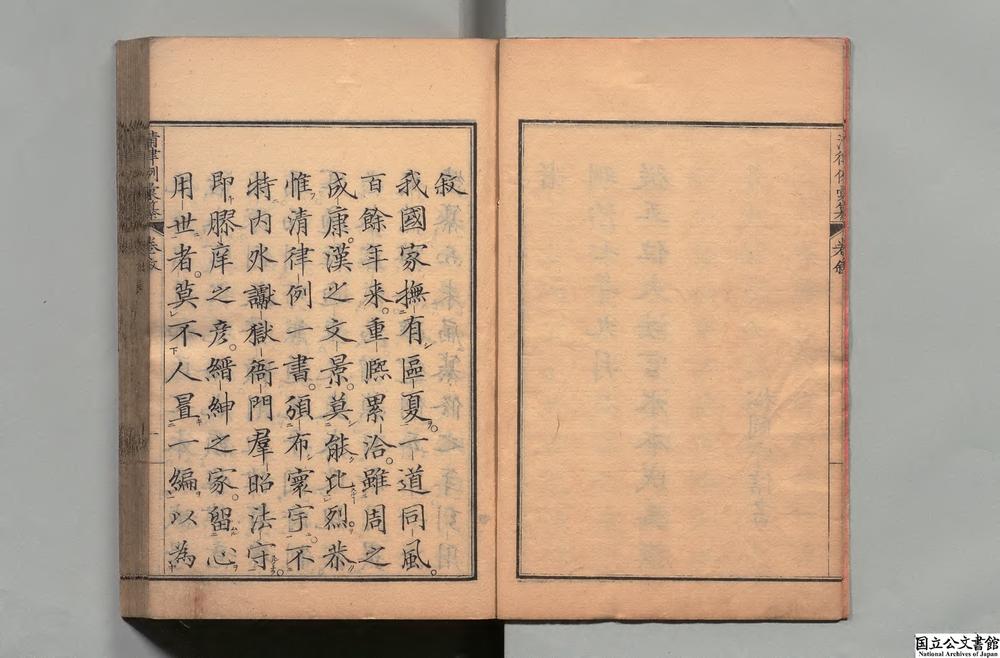 敘
我國家撫有區夏。一道同風。
百餘年來。重熈累洽。雖周之
成康。漢之文景。莫能比烈。恭
惟清律例一書。頒布寰宇。不
特內外讞獄衙門。羣昭法守。
即膠庠之彥。縉紳之家。留心
用世者。莫不人置一編。以為
清律例彙纂
卷敘
国立公文書館
National Archives of Japan